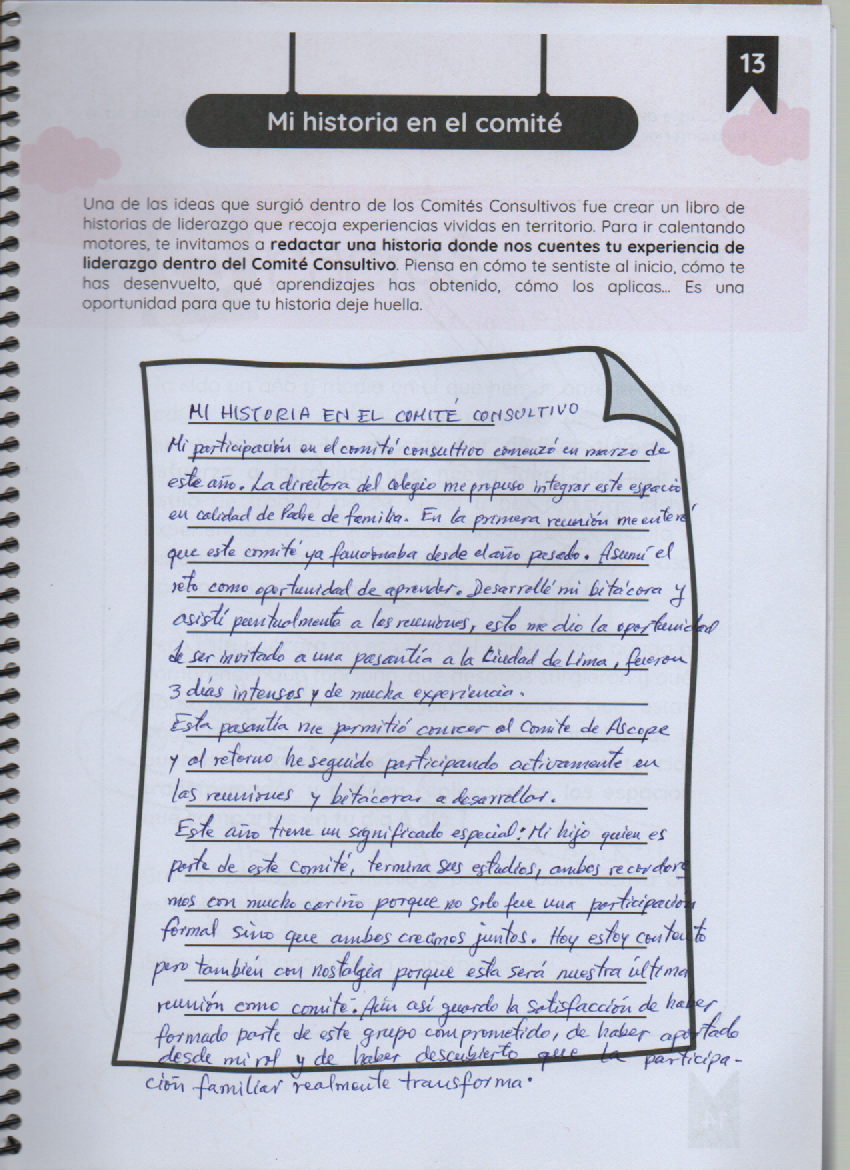 13
Mi historia en el comité
Una de las ideas que surgió dentro de los Comités Consultivos fue crear un libro de
historias de liderazgo que recoja experiencias vividas en territorio. Para ir calentando
motores, te invitamos a redactar una historia donde nos cuentes tu experiencia de
liderazgo dentro del Comité Consultivo. Piensa en cómo te sentiste al inicio, cómo te
has desenvuelto, qué aprendizajes has obtenido, cómo los aplicas... Es una
oportunidad para que tu historia deje huella.
MI HISTORIA EN EL COMITÉ CONSULTIVO
Mi participación en el comité consultivo comenzó en marzo de
este año. La directora del colegio me propuso integrar este espacio
en calidad de Padre de familia. En la primera reunión me enteré
que este comité ya funcionaba desde el año pasado. Asumí el
reto como oportunidad de aprender. Desarrollé mi bitácora y
asistí puntualmente a las reuniones, esto me dio la oportunidad
de ser invitado a una pasantía a la Ciudad de Lima, fueron
3 días intensos y de mucha experiencia.
Esta pasantía me permitió conocer al Comite de Ascope
y al retorno he seguido participando activamente en
las reuniones y bitácoras a desarrollar.
Este año tiene un significado especial: Mi hijo quien es
parte de este Comité, termina sus estudios, ambos recordare
mos con mucho cariño porque no solo fue una participación
formal sino que ambos crecimos juntos. Hoy estoy contento
pero también con nostalgia porque esta será nuestra última
reunión como comité. Aún así guardo la satisfacción de haber
formado parte de este grupo comprometido, de haber aportado
desde mi rol y de haber descubierto que la participa-
ción familiar realmente transforma.